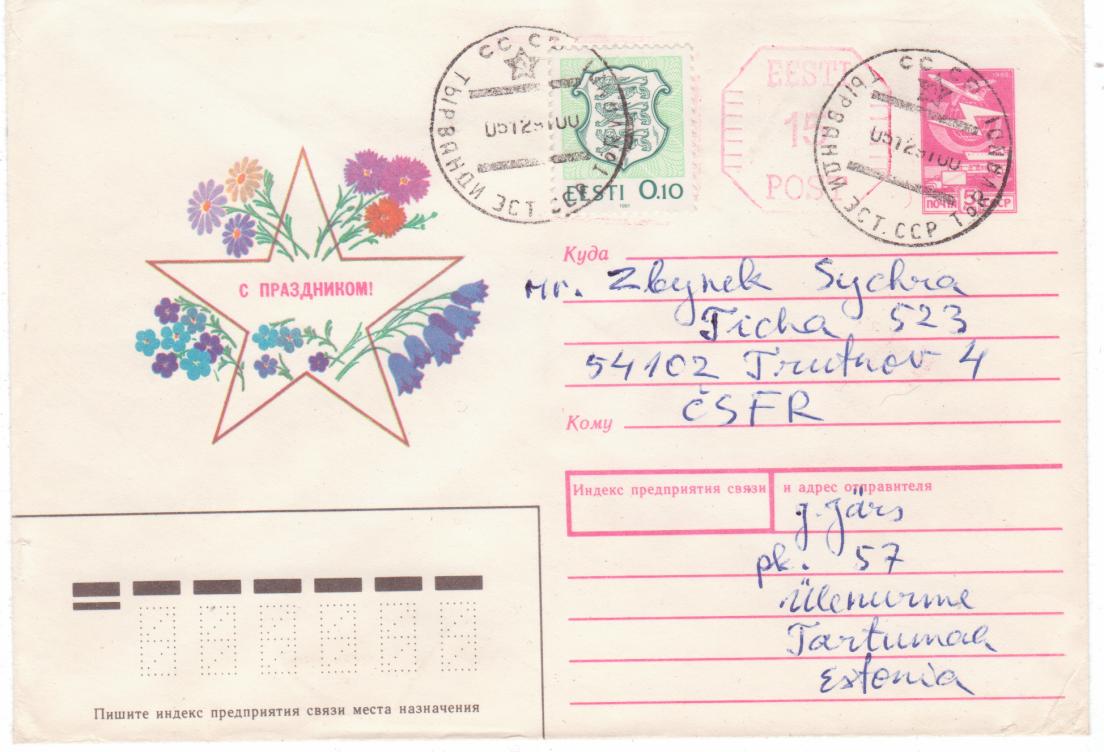 СССР ТЫРВАНДИ ЭСТ. ССР TÕRVANDI
05129100
EESTI 0.10
1991
EESTI
15
POST
СССР ТЫРВАНДИ ЭСТ. ССР TÕRVANDI
05129100
1982
ПОЧТА 5 СССР
С ПРАЗДНИКОМ!
Куда
Mr. Zbynek Sychra
Ticha 523
54102 Trutnov 4
ČSFR
Кому
Индекс предприятия связи и адрес отправителя
J. Järs
pk. 57
Ülenurme
Tartumaa
Estonia
Пишите индекс предприятия связи места назначения